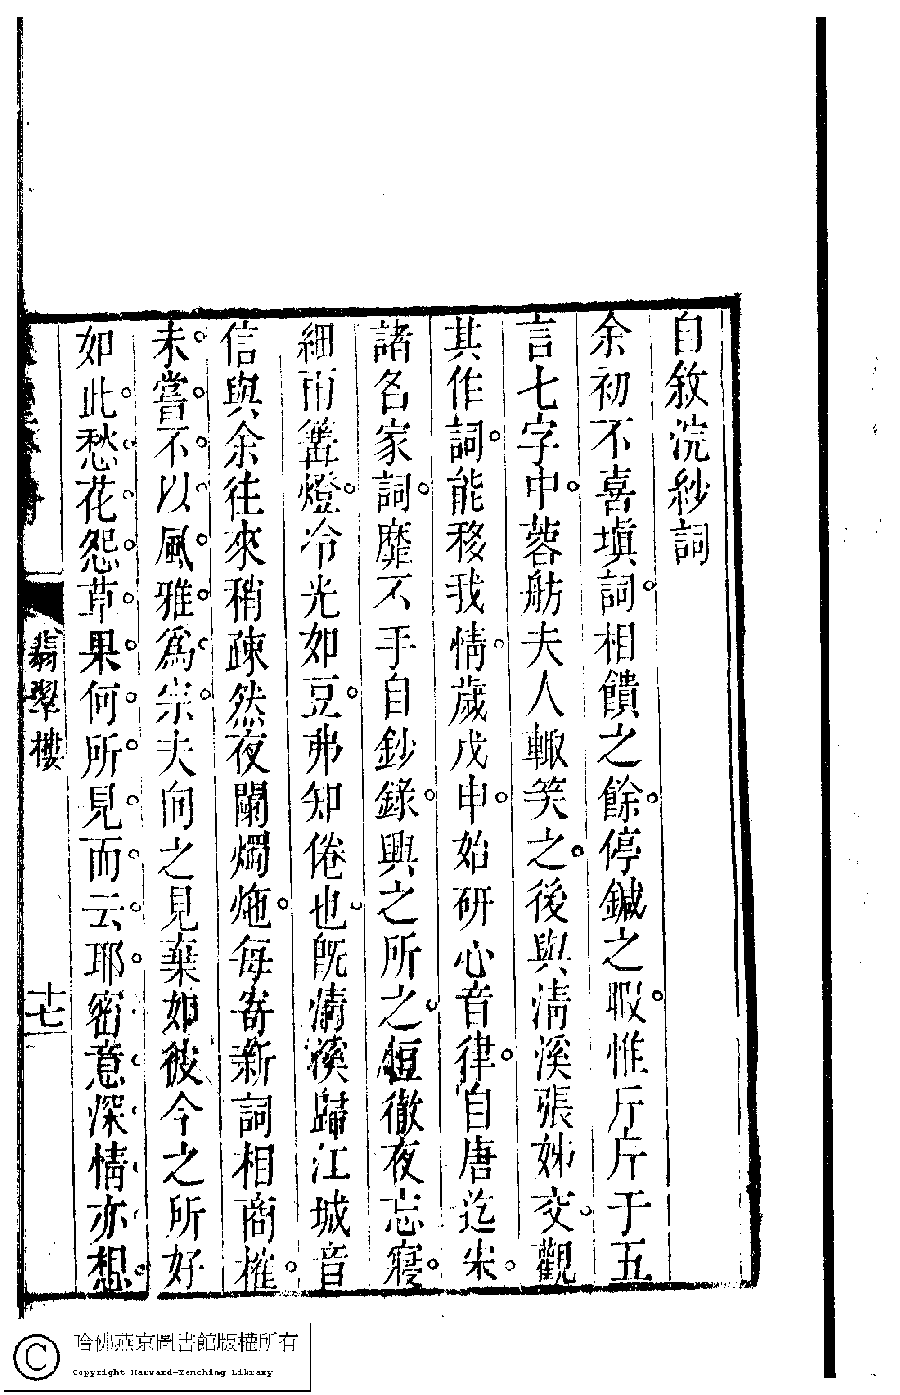 自敘浣紗詞
余初不喜塡詞相饋之餘停鍼之暇惟斤斤于五
言七字中蓉舫夫人輙笑之後與淸溪張姊交觀
其作詞能移我情歲戊申始研心音律自唐迄宋
諸名家詞靡不手自鈔錄興之所之短徹夜忘寝
細雨篝燈冷光如豆弗知倦也旣淸溪歸江城音
信與余往來稍疎然夜闌燭炧每寄新詞相商榷
未嘗不以風雅爲宗夫向之見棄如彼今之所好
如此愁花怨草果何所見而云耶密意深情亦想
翡翠樓
十七
哈佛燕京圖書館版權所有
Copyright Harvard-Yenching Library